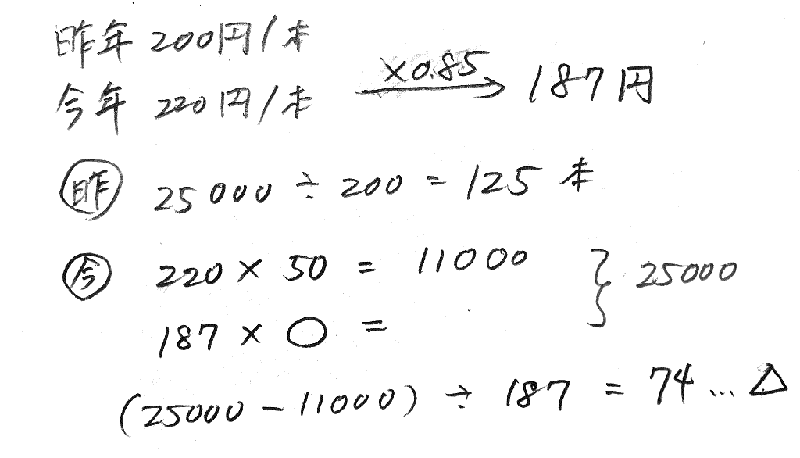 昨年 200円/本
今年 220円/本 ×0.85 → 187円
昨 25000 ÷ 200 = 125 本
今 220 × 50 = 11000 } 25000
187 × ○ =
(25000 - 11000) ÷ 187 = 74 … △